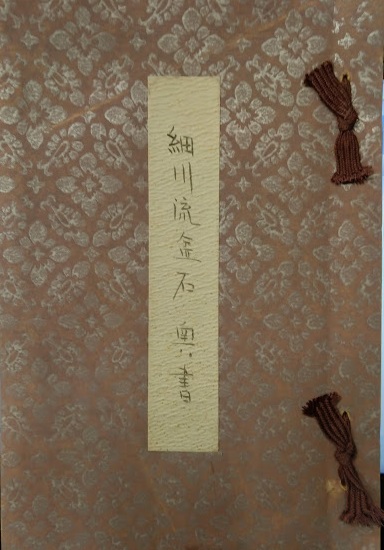 細川流盆石 奥書